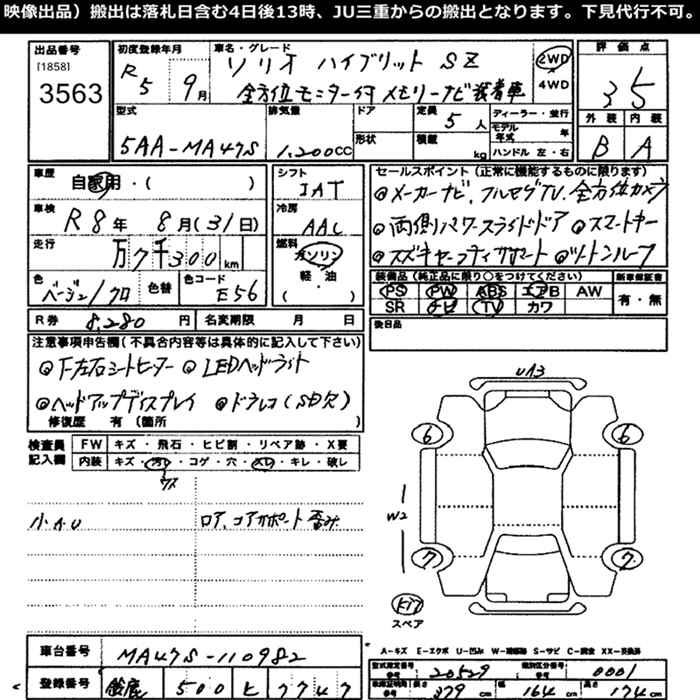 映像出品）搬出は落札日含む4日後13時、JU三重からの搬出となります。下見代行不可。
出品番号 [1858] 3563
初度登録年月 R5 9月
車名・グレード ソリオ ハイブリット SZ
全方位モニター付 メモリーナビ装着車
2WD 4WD
評価点 3.5
外装 B 内装 A
型式 5AA-MA47S
排気量 1.200cc
ドア 形状
定員 5人
積載 kg
ディーラー・並行
モデル年式 年
ハンドル 左・右
車歴 自家用・( )
車検 R8年 8月(31日)
走行 万7千300km
色 ベージュ/クロ 色替 色コード E56
シフト IAT
冷房 AAC
燃料 ガソリン 軽・油 ( )
セールスポイント（正常に機能するものに限ります）
◎メーカーナビ.フルセグTV.全方位カメラ
◎両側パワースライドドア ◎スマートキー
◎スズキセーフティサポート ◎ツートンルーフ
装備品（純正品に限り○をつけてください） 新車保証書
PS PW ABS エアB AW 有・無
SR ナビ TV カワ
R券 8,280円 名変期限 月 日
後日品
注意事項申告欄(不具合内容等は具体的に記入して下さい)
◎下左右シートヒーター ◎LEDヘッドライト
◎ヘッドアップディスプレイ ◎ドラレコ(SD欠)
修復歴 有(箇所
検査員記入欄
FW キズ・飛石・ヒビ割・リペア跡・X要
内装 キズ・汚れ・コゲ・穴・スレ・キレ・破し
小A.U
ロア.コアサポート歪み
UA3
6 6
W2
7 7
スペア
A－キズ E－エクボ U－凹み W－補修跡 S－サビ C－腐食 XX－交換済
車台番号 MA47S-110982
登録番号 鈴鹿 500 ヒ 7747
型式指定番号 20529 類別区分番号 0001
長さ 379cm 幅 164cm 高さ 174cm